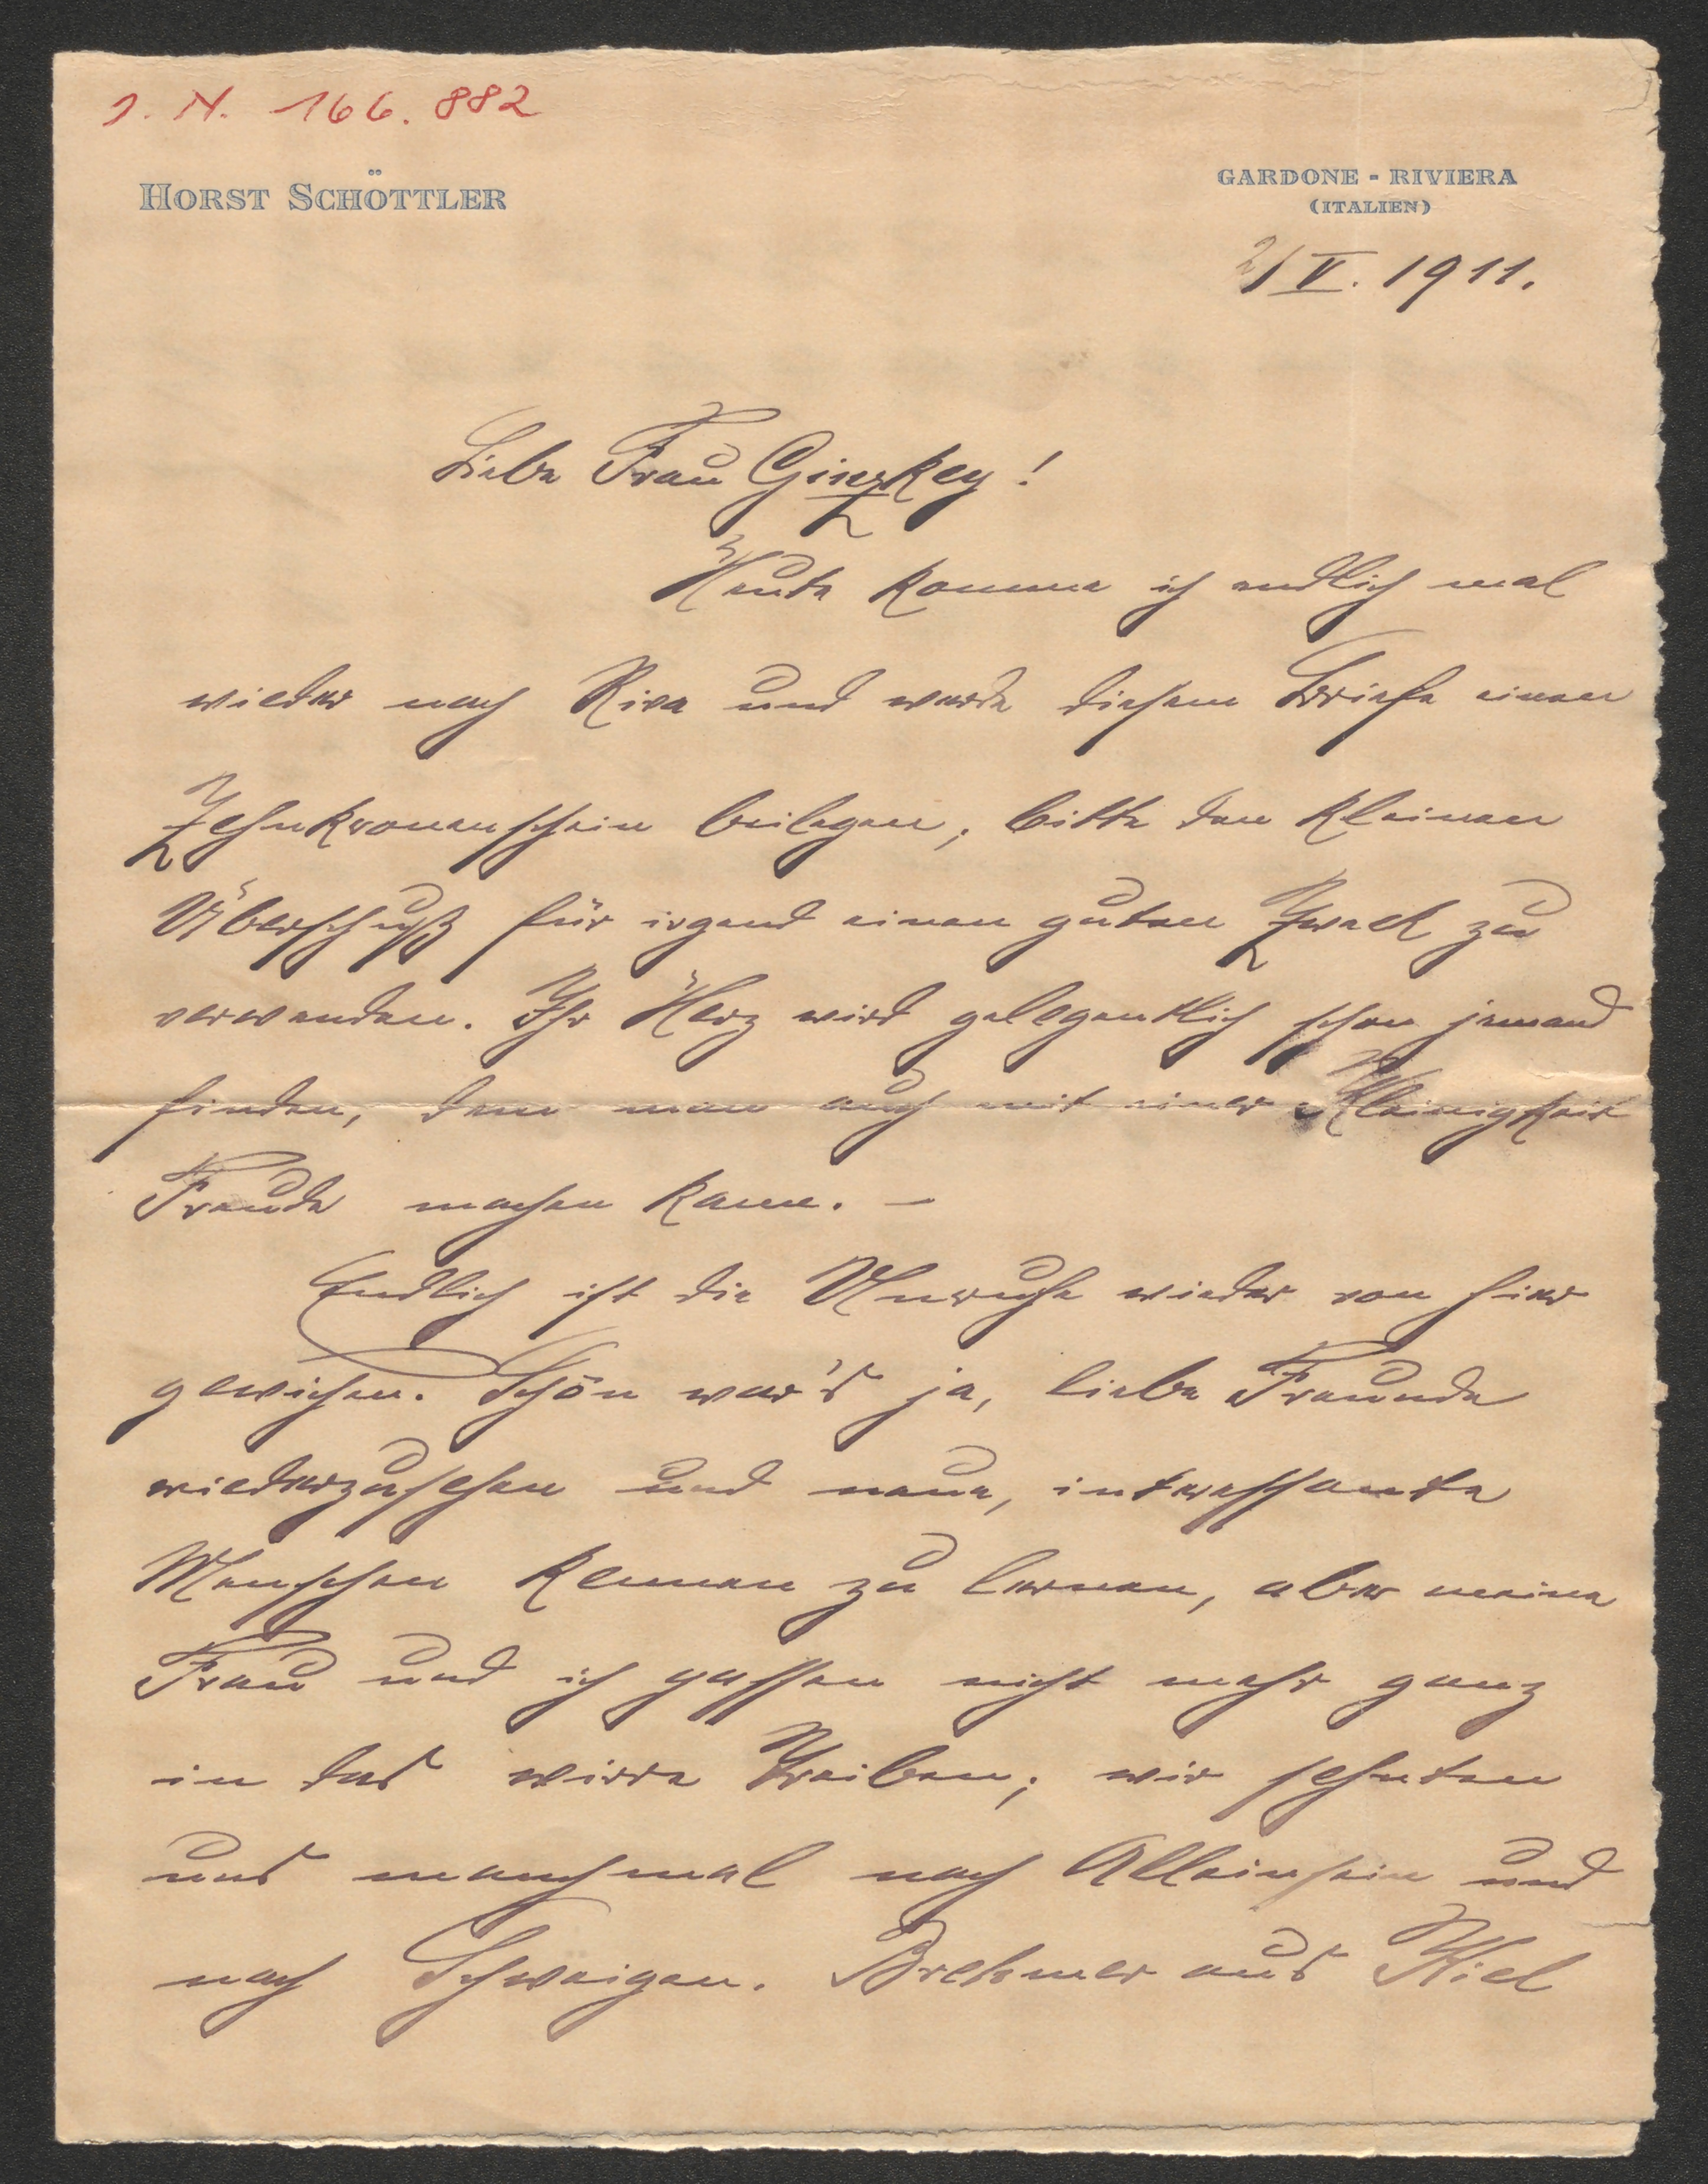 J. N. 166.882
HORST SCHÖTTLER
GARDONE - RIVIERA
(ITALIEN)
2/V. 1911.
Liebe Frau Ginzkey!
Heute komme ich endlich mal
wieder nach Riva und werde diesem Briefe einen
Zehnkronenschein beilegen, bitte den kleinen
Überschuß für irgend einen guten Zweck zu
verwenden. Ihr Herz wird gelegentlich schon jemand
finden, dem man auch mit einer Kleinigkeit
Freude machen kann. –
Endlich ist die Unruhe wieder von hier
gewichen. Schön war's ja, liebe Freunde
wiederzusehen und neue, interessante
Menschen kennen zu lernen, aber meine
Frau und ich passen nicht mehr ganz
in das wirre Treiben; wir sehnten
uns manchmal nach Alleinsein und
nach Schweigen. Brehmer aus Kiel